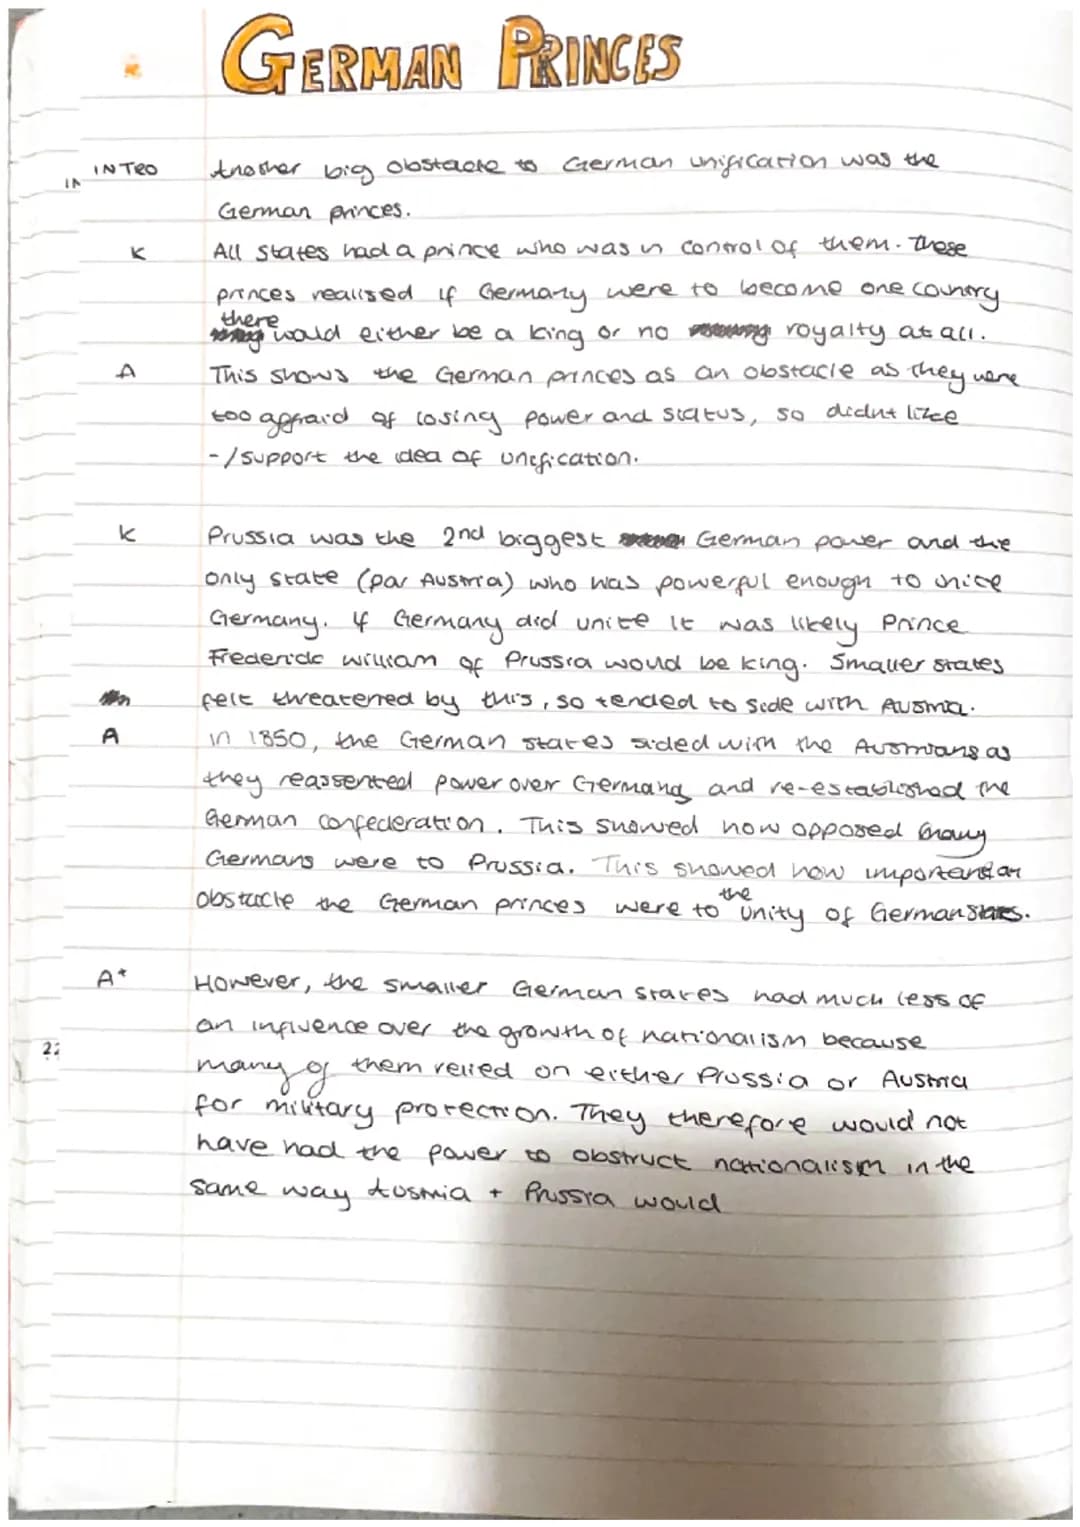 GERMAN PRINCES
INTRO Another big obstacle to German unification was the
IN
German princes.
K All states had a prince who was in control of them. These
princes realised if Germany were to become one country
there
would either be a king or no royalty at all.
A This shows the German princes as an obstacle as they were
too affraid of losing power and status, so didnt like
-/support the idea of unification.
K Prussia was the 2nd biggest German power and the
only state (par Austria) who was powerful enough to unite
Germany. If Germany did unite it was likely Prince
Frederick william of Prussia would be king. Smaller states
felt threatened by this, so tended to side with Austria.
A in 1850, the German states sided with the Austrians as
they reasserted power over Germany and re-established the
German confederation. This showed how opposed many
Germans were to Prussia. This showed how important an
the
obstacle the German princes were to unity of German States.
A* However, the smaller German states had much less of
an influence over the growth of nationalism because
22
many of them relied on either Prussia or Austria
for military protection. They therefore would not
have had the power to obstruct nationalism in the
same way Austria + Prussia would